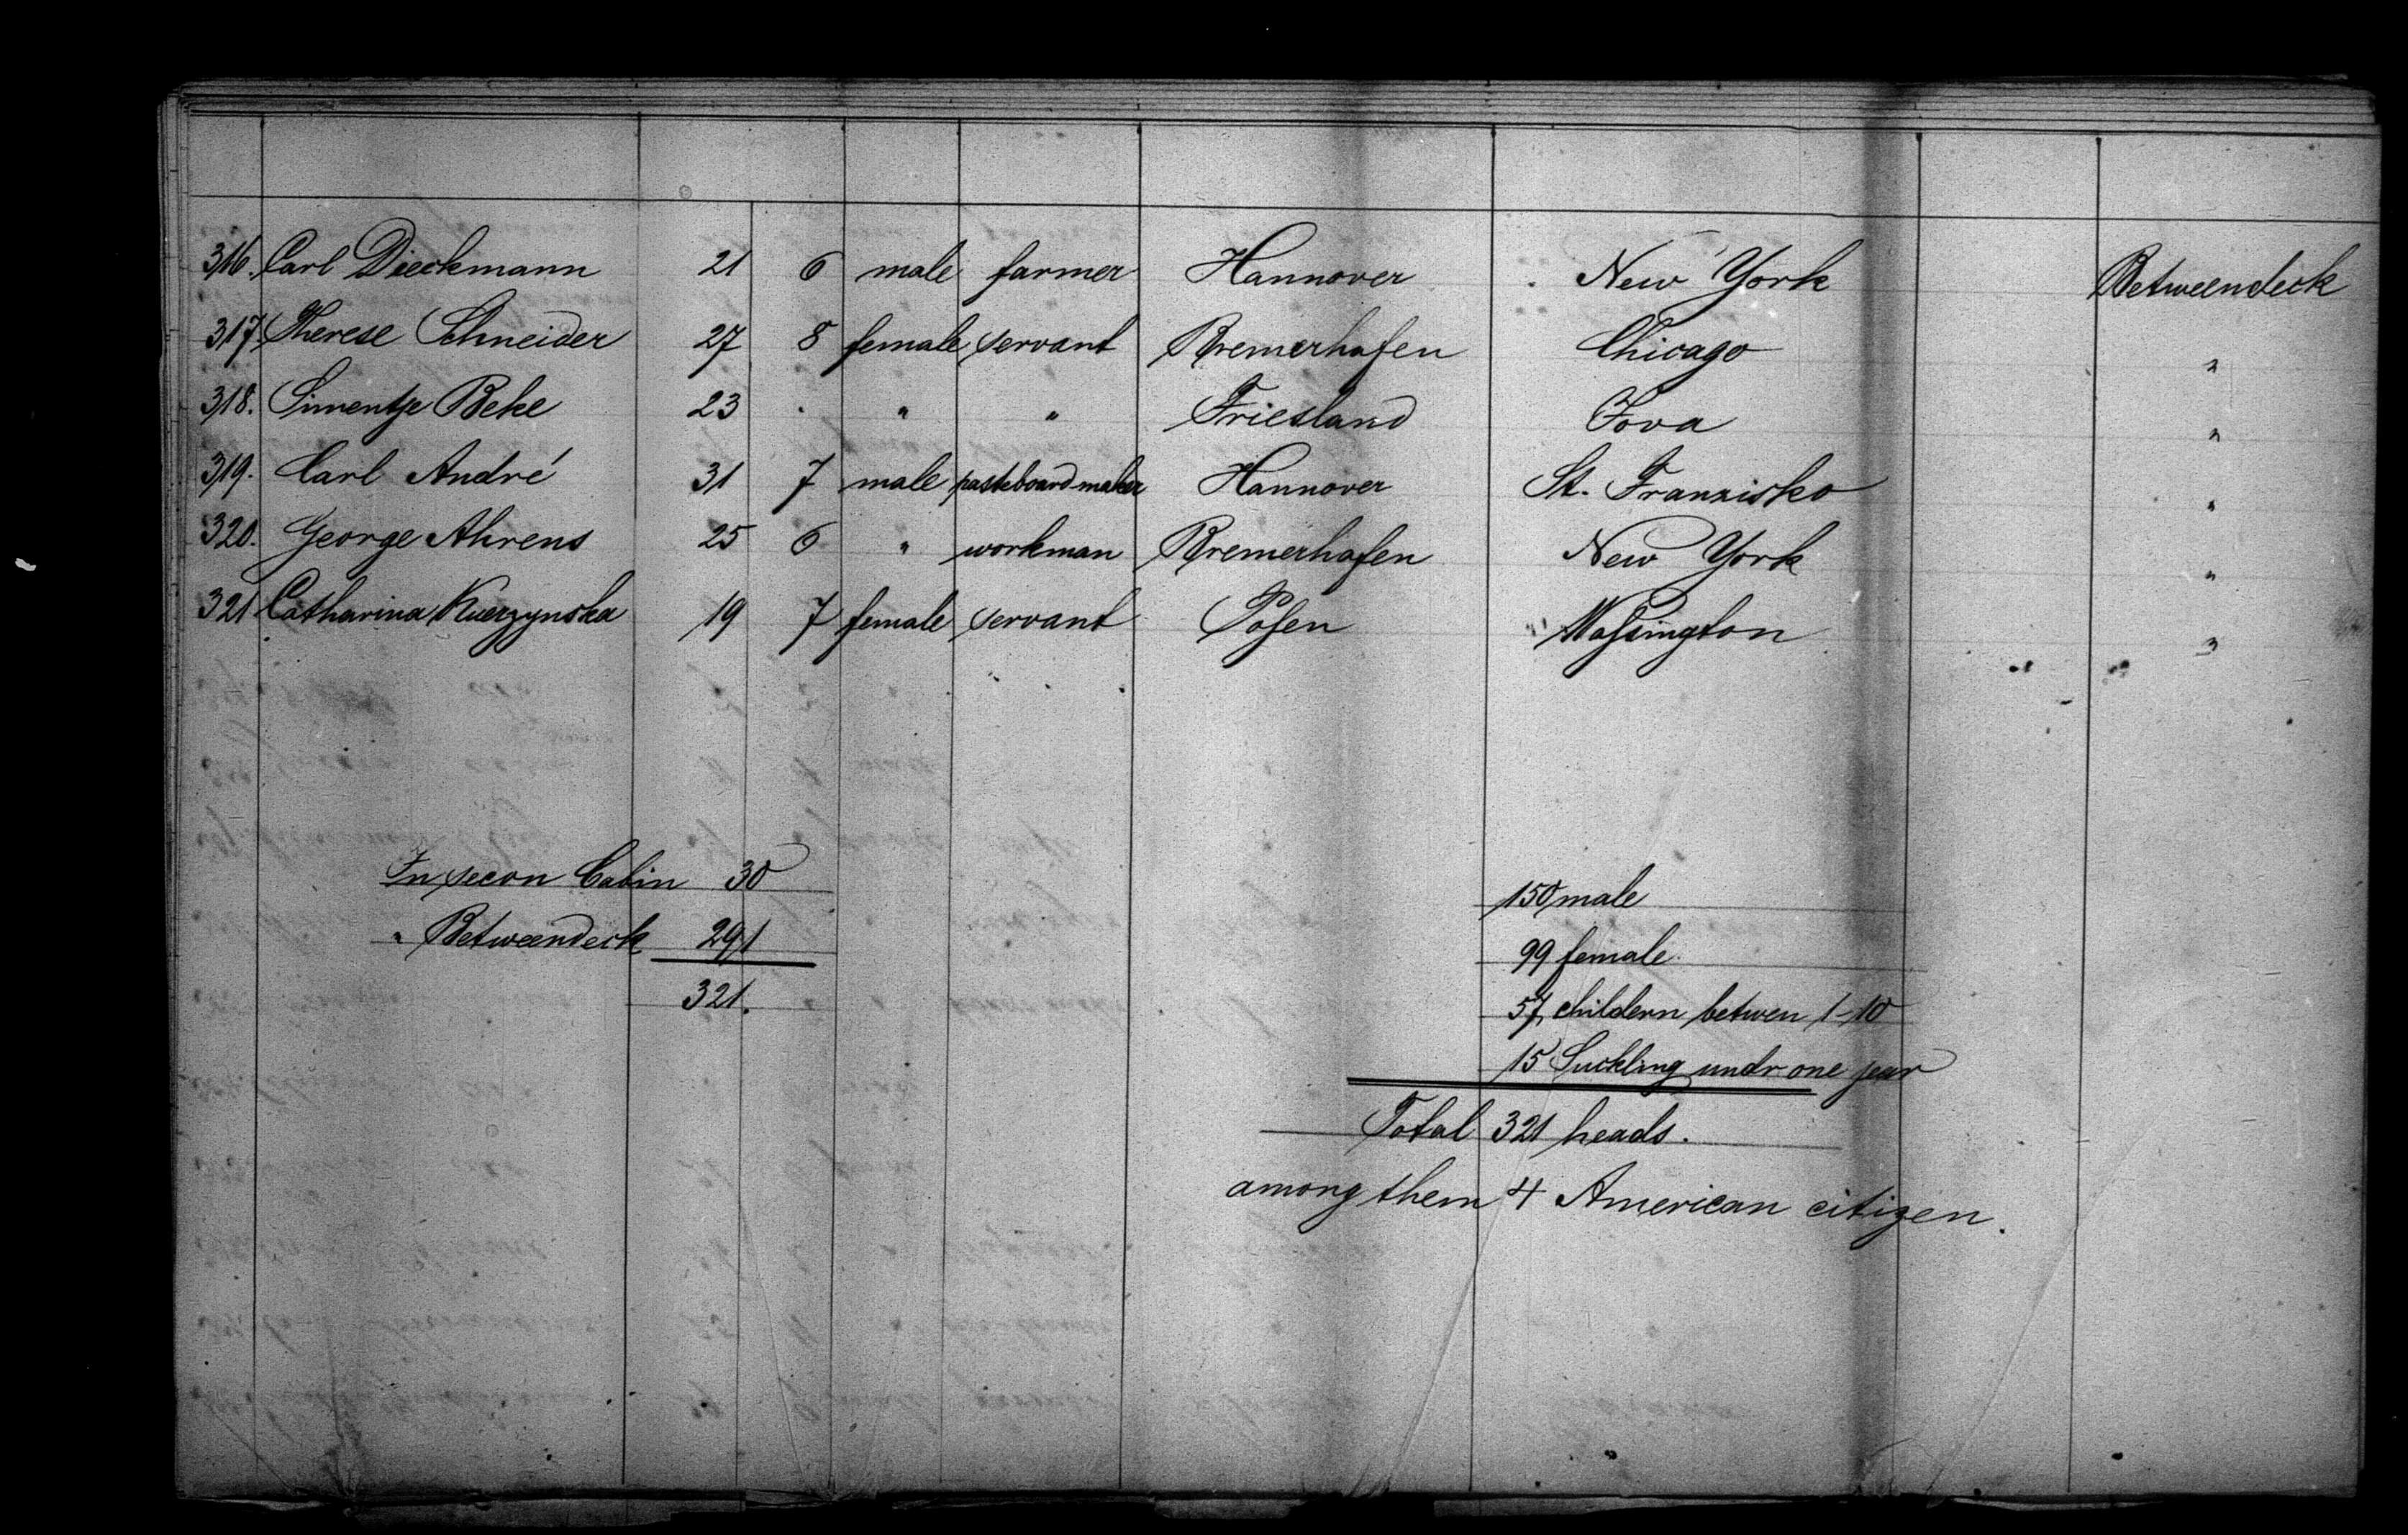 316. Carl Dieckmann 21 6 male farmer Hannover New York Betweendeck
317. Therese Schneider 27 8 female servant Bremerhafen Chicago "
318. Simentje Beke 23 . " " Friesland Iova "
319. Carl André 31 7 male pasteboard maker Hannover St. Franzisko "
320. George Ahrens 25 6 " workman Bremerhafen New York "
321 Catharina Kuerzynska 19 7 female servant Posen Wassington "
In secon Cabin 30
" Betweendeck 291
321.
150 male
99 female
57 childern betwen 1-10
15 Suckling undr one year
Total 321 heads.
among them 4 American citizen.